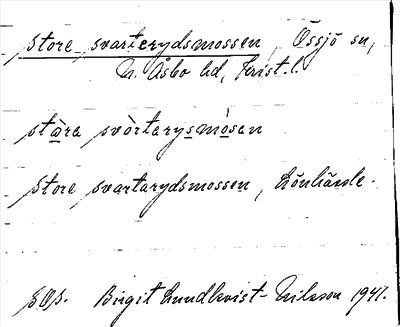 Store svarterydsmossen, Össjö sn,
N. Åsbo hd, Krist. l.
stòra svòrterysmòsen
Store svartarydsmossen, Lönhässle.
SOS. Birgit Lundkvist-Nilsson 1941.